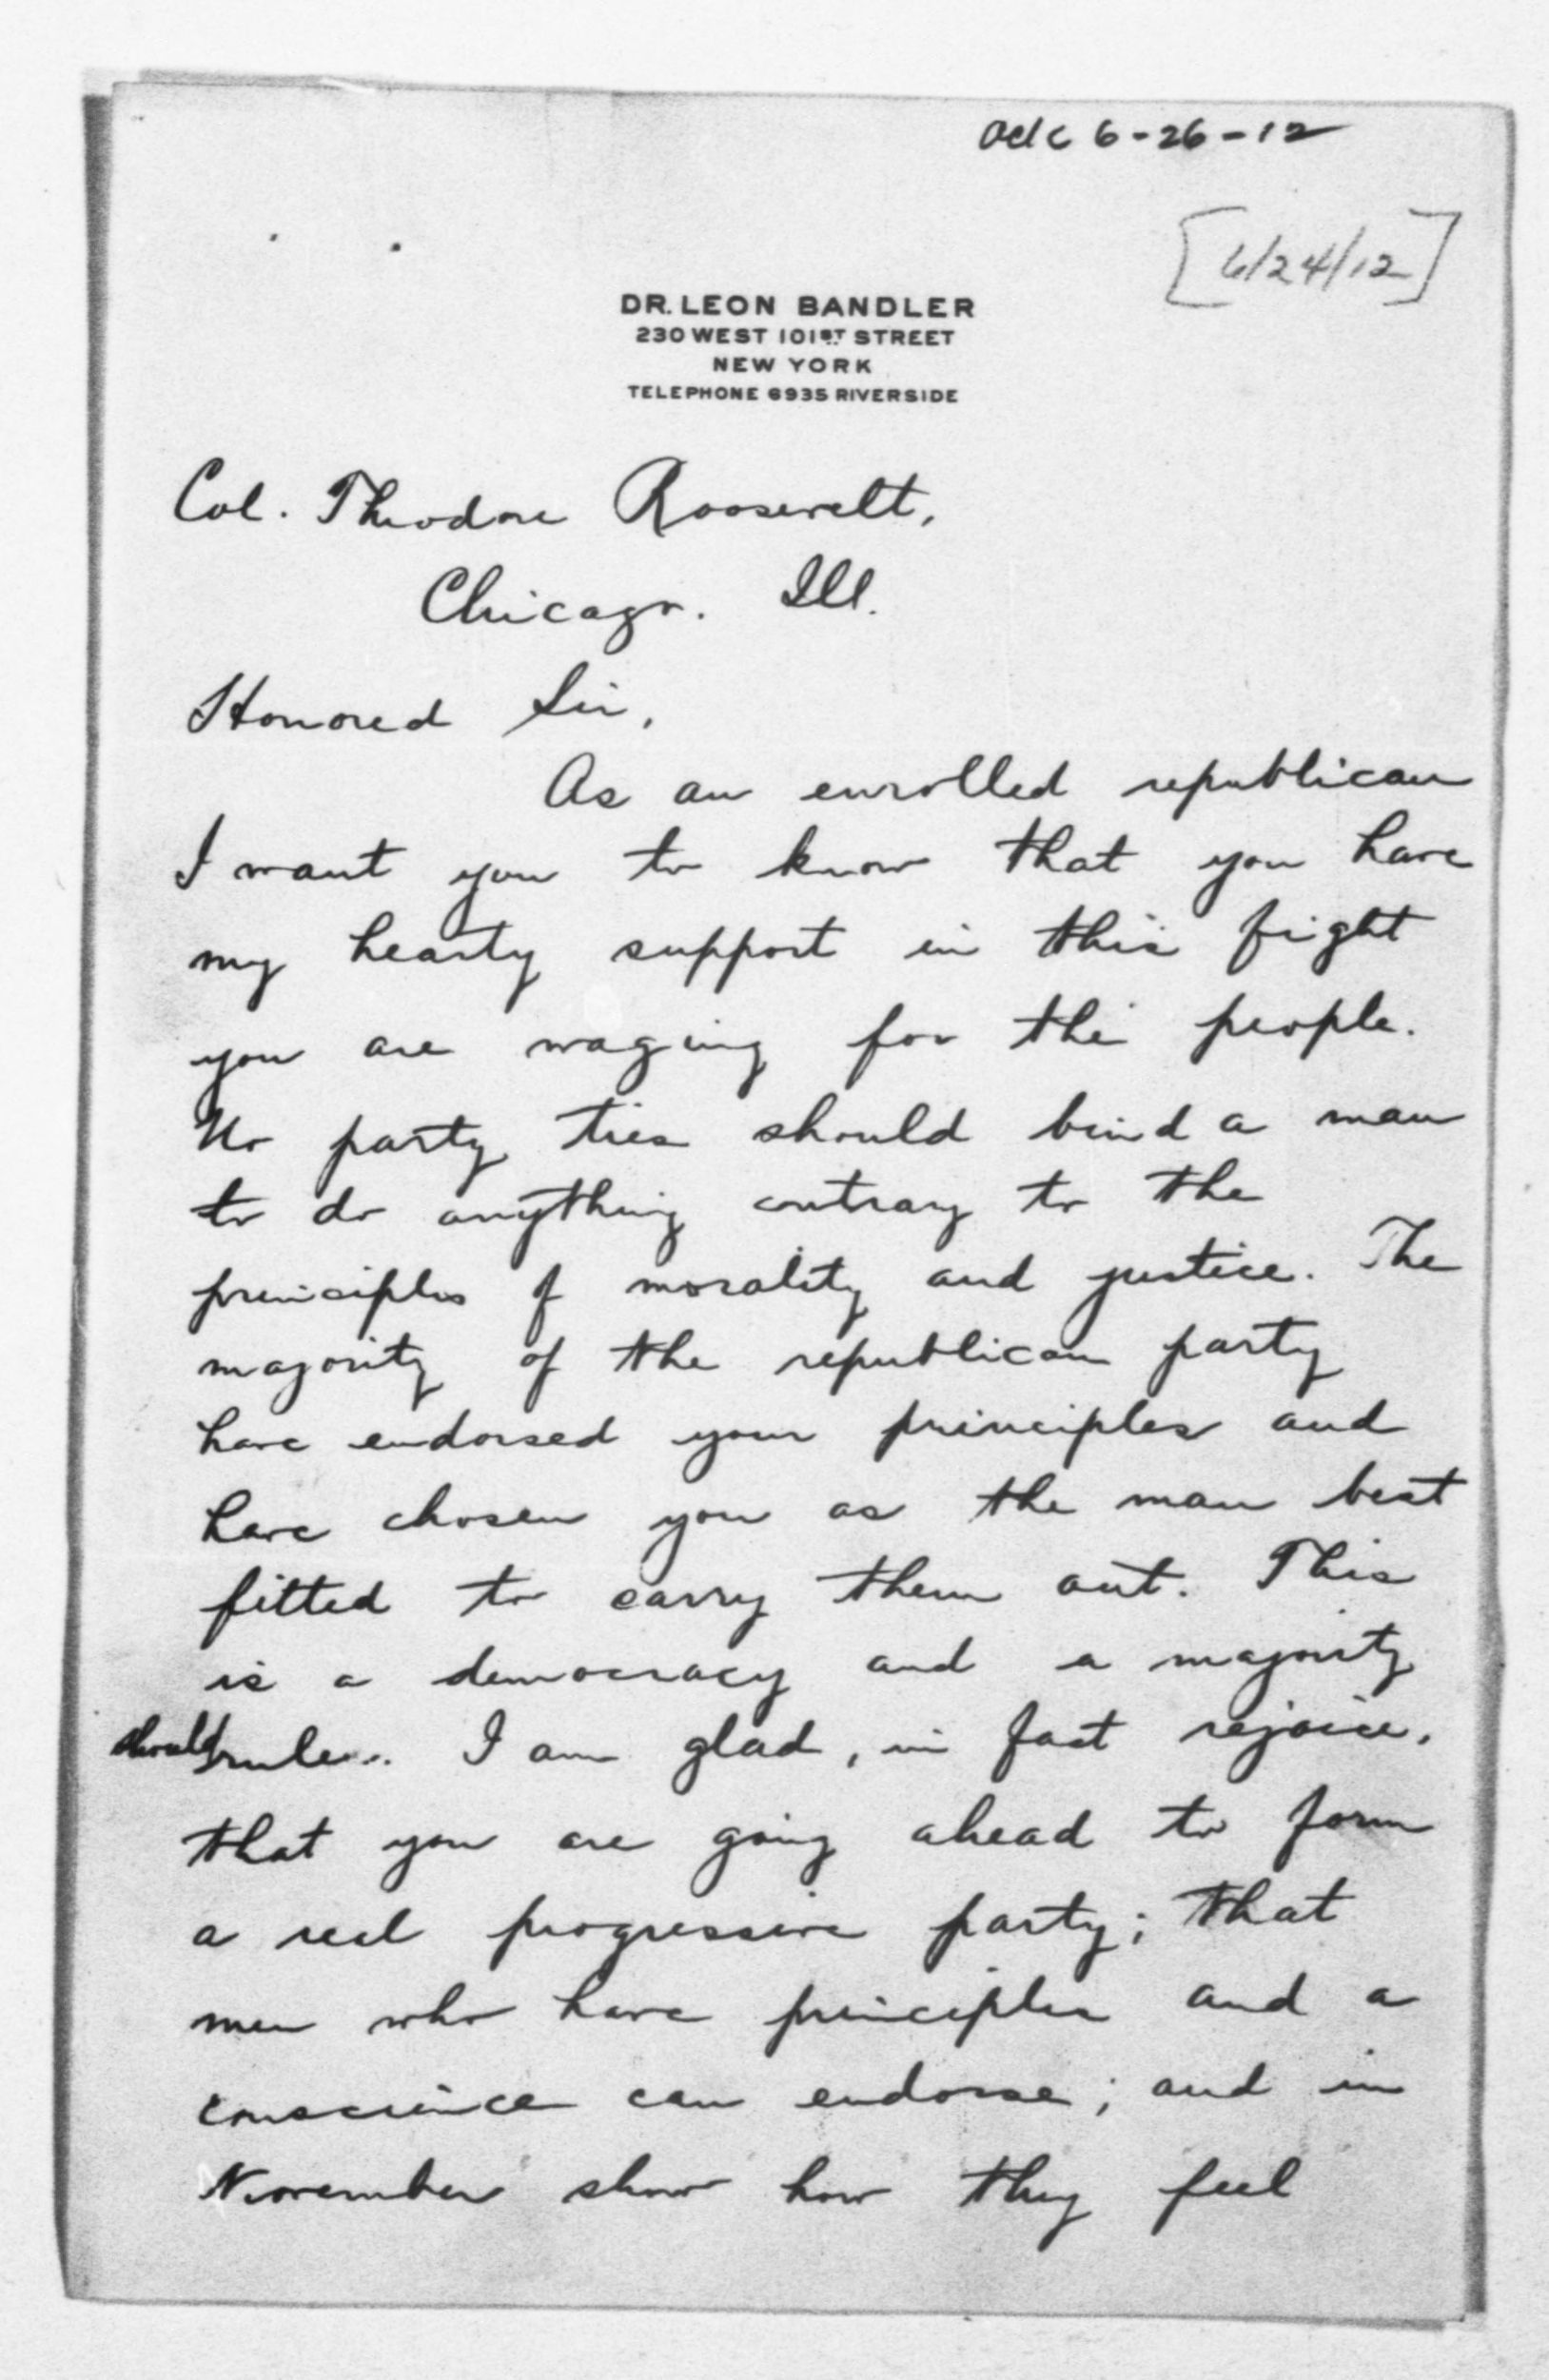 Ack 6-26-12
[6/24/12]
DR. LEON BANDLER
230 WEST 101ST STREET
NEW YORK
TELEPHONE 6935 RIVERSIDE
Col. Theodore Roosevelt,
Chicago. Ill.
Honored Sir,
As an enrolled republican
I want you to know that you have
my hearty support in this fight
you are waging for the people.
No party ties should bind a man
to do anything contrary to the
principles of morality and justice. The
majority of the republican party
have endorsed your principles and
have chosen you as the man best
fitted to carry them out. This
is a democracy and a majority
should rule. I am glad, in fact rejoice,
that you are going ahead to form
a real progressive party; that
men who have principles and a
conscience can endorse; and in
November show how they feel